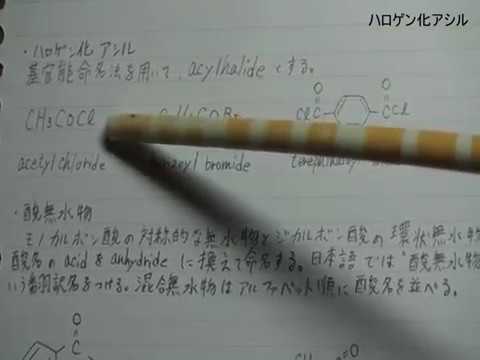 ハロゲン化アシル
・ハロゲン化アシル
基官能命名法を用いて、acylhalideとする。
CH3COCl
O O
Cl C C Cl
acetyl chloride bromide
・酸無水物
モノカルボン酸の対称的な無水物とジカルボン酸の環状無水物
酸名のacidをanhydrideに換えて命名する。日本語では"酸無水物
いう翻訳名をつける。混合無水物はアルファベット順に酸名を並べる。
O O
C